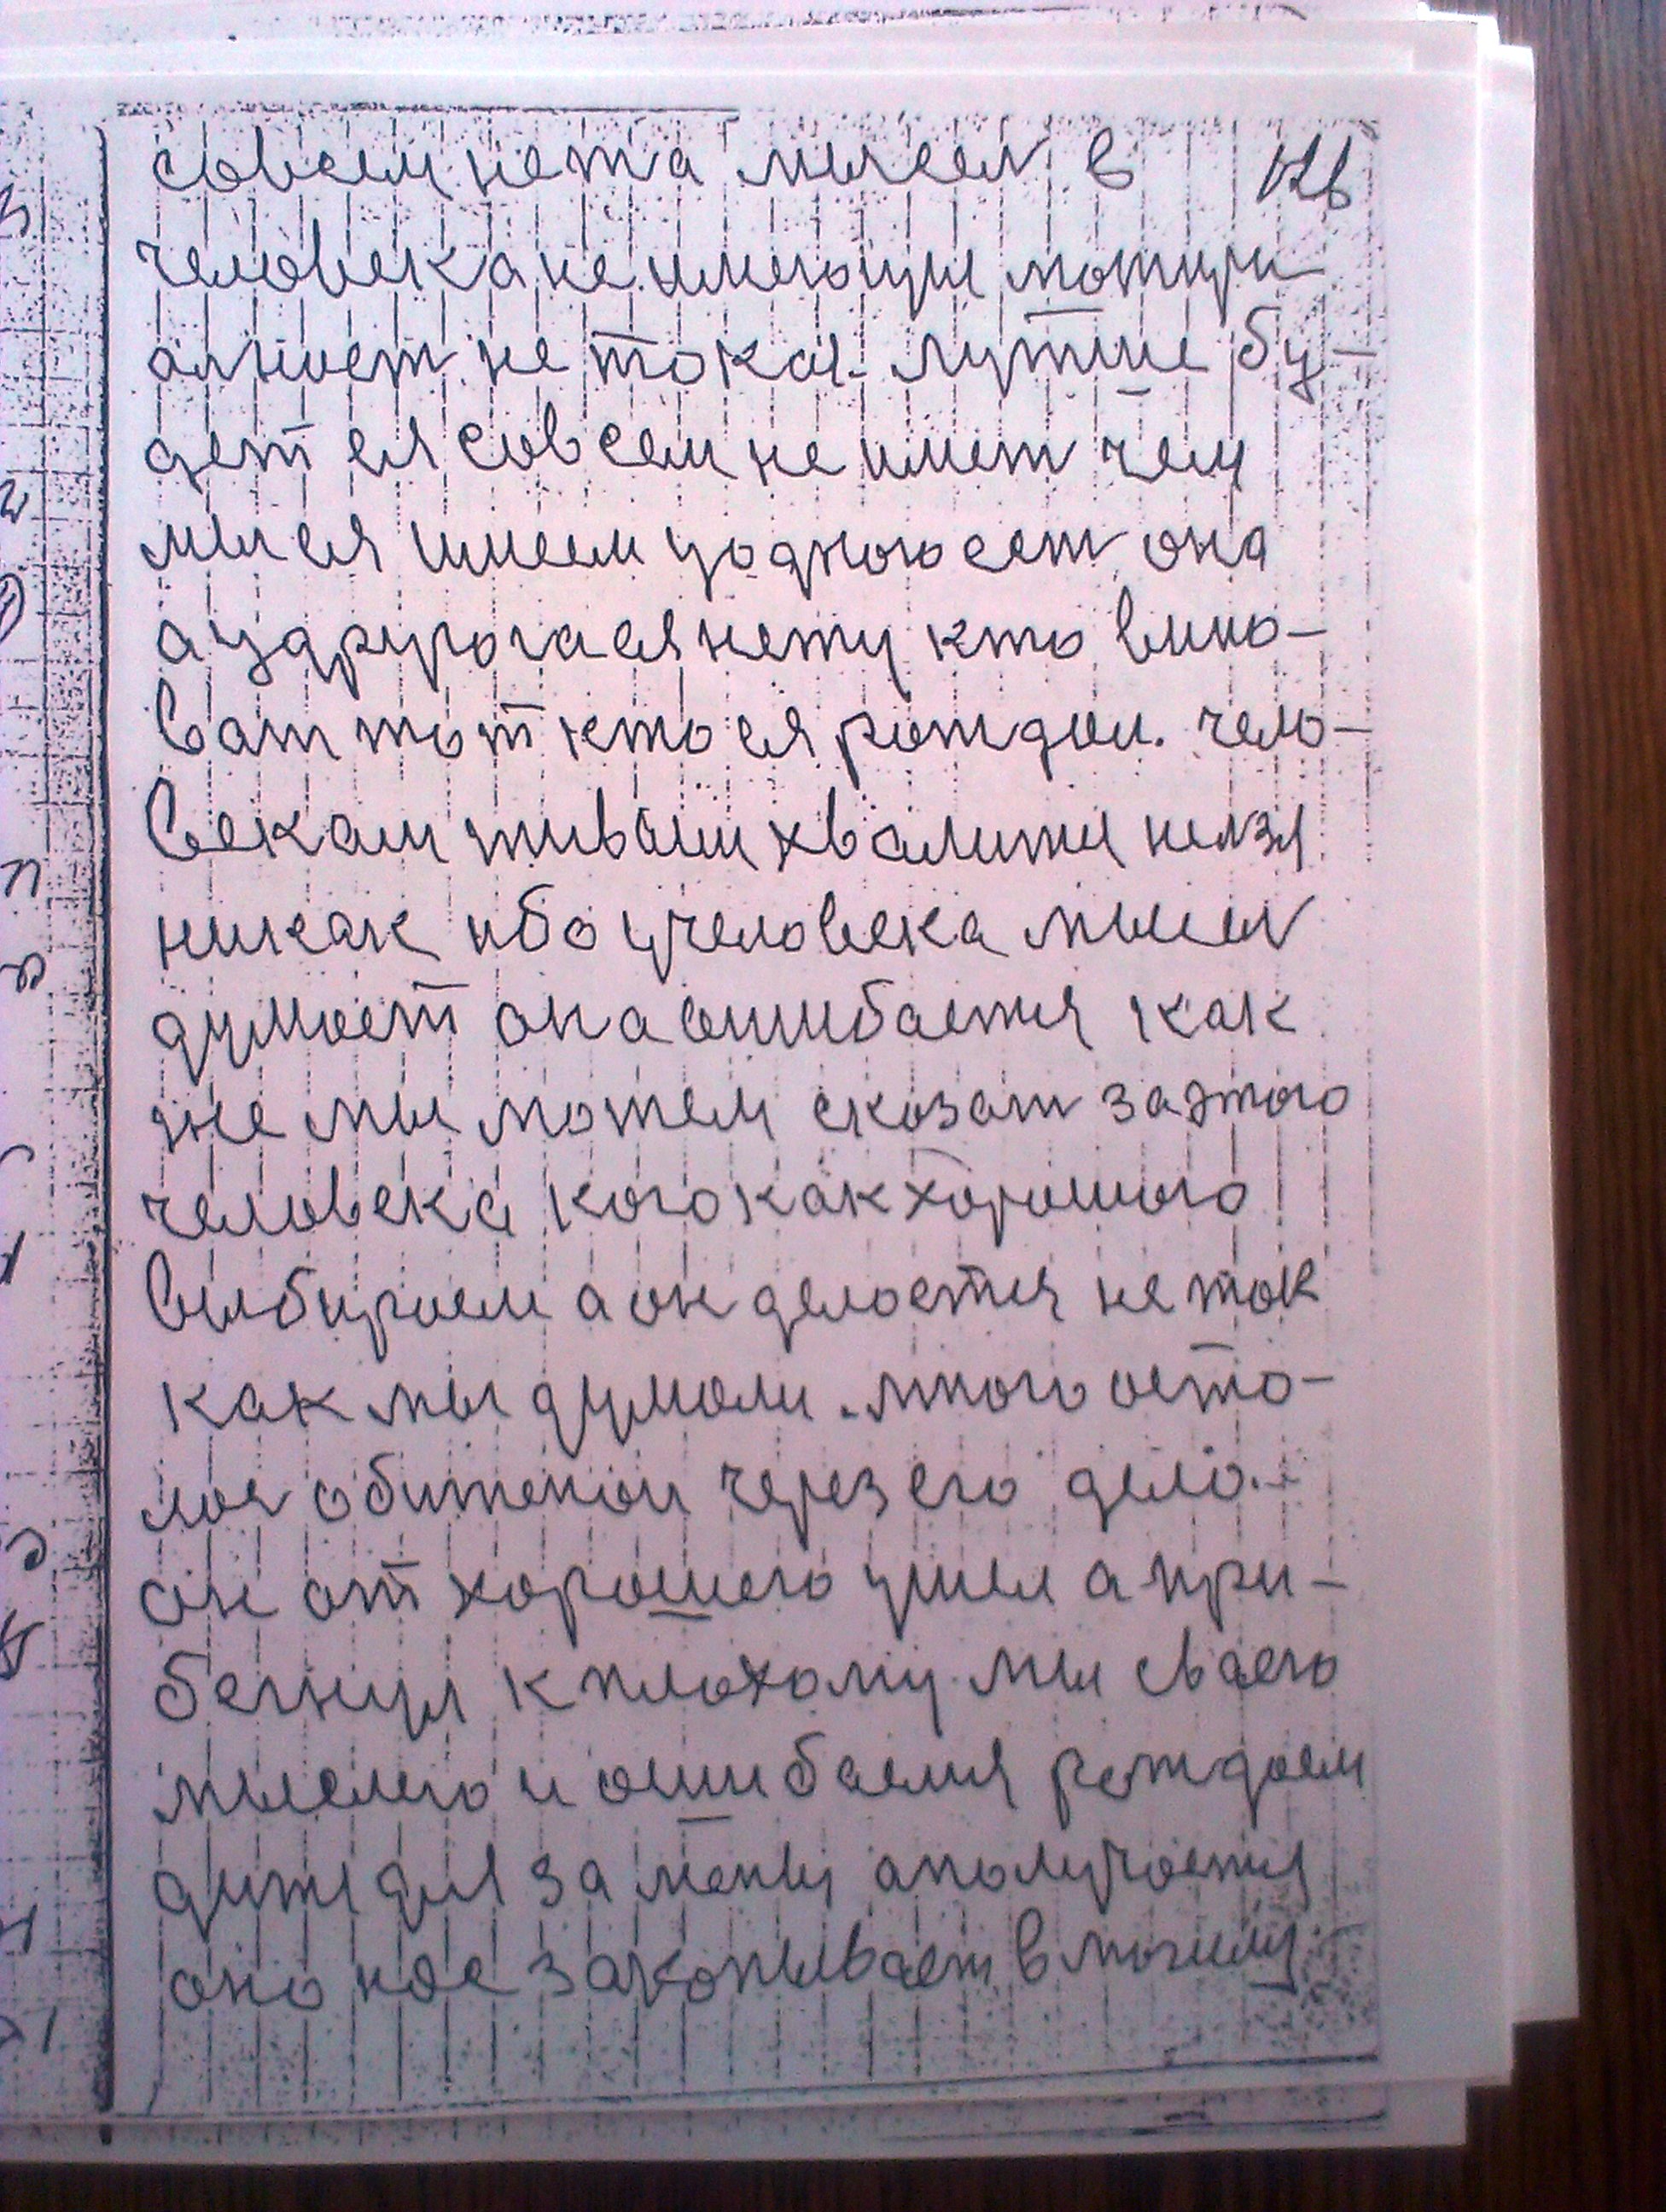 совсем нета мысел в
человека не имеющие мотири
алност не токая. лутше бу-
дет ея совсем не имет чем
мы ея имеем уодного ест она
а удругога ея нету кто вино-
ват тот кто ея рождои. чело-
векам живаши хвалитя нелзя
никак ибо учеловека мысел
думоет она ошибается как
же мыможем сказат заэтого
человека кого как хорошого
выбираем а он делоется не ток
как мы думоли. много осто-
лоя обиженои через его дело.-
он от хорошего ушел а при-
бегнул к плохому мы сваего
мыслею и ошибаемя рождоем
дитя для замены аполучоетя
оно нос закопывает в могилу.-